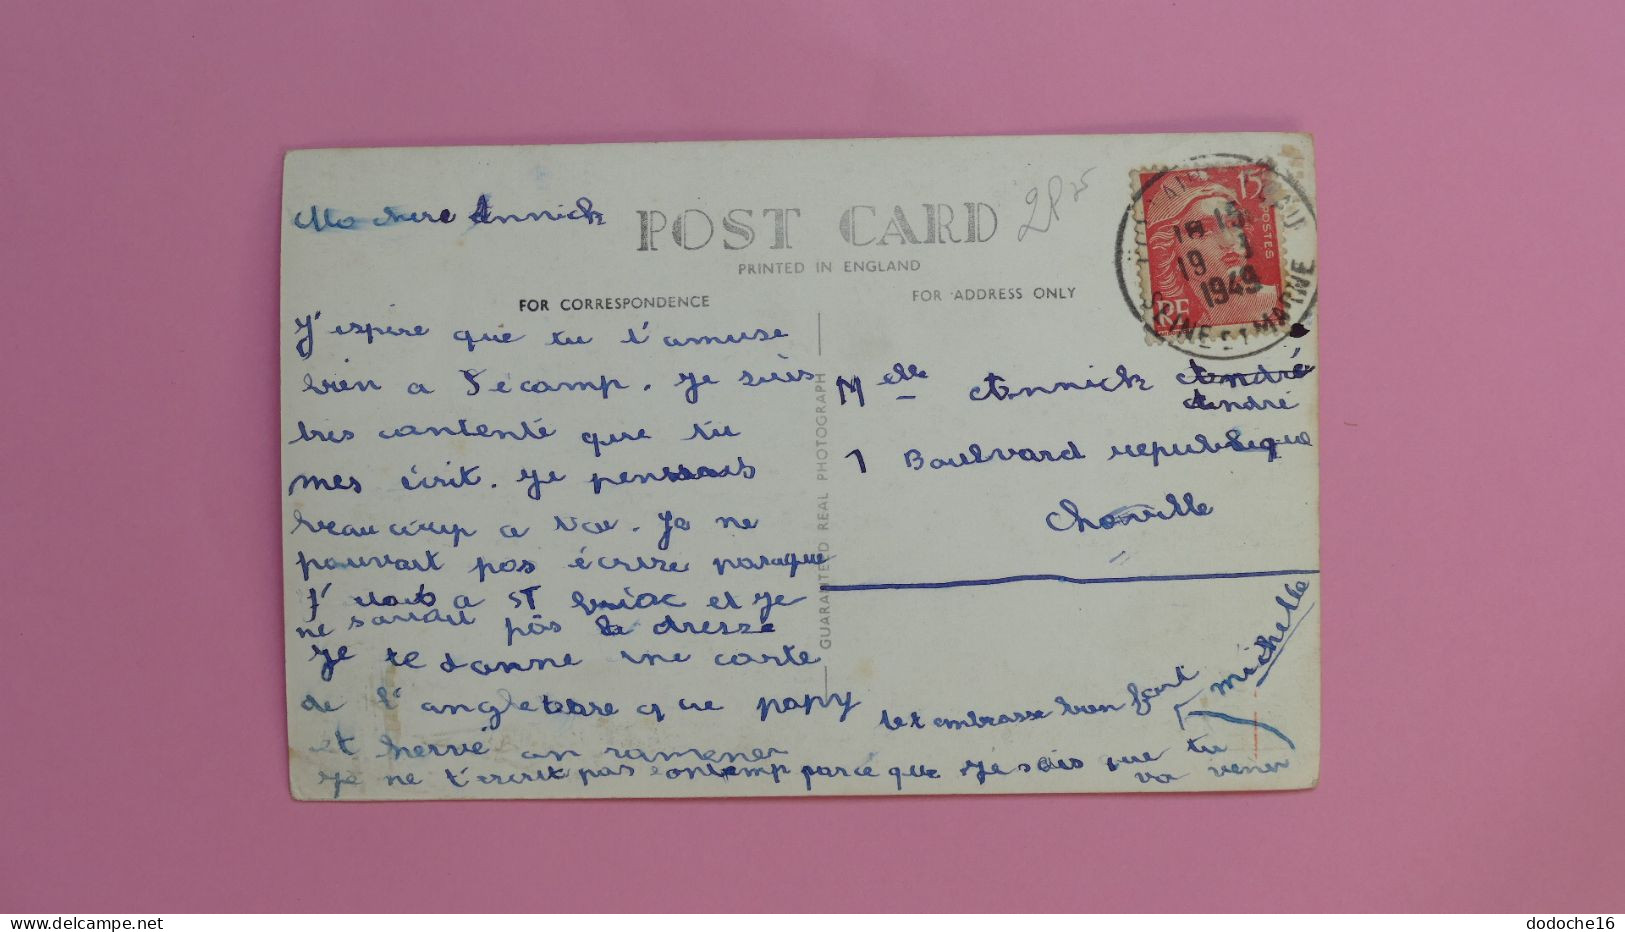 Ma chere Annick
POST CARD
PRINTED IN ENGLAND
FOR CORRESPONDENCE
FOR ADDRESS ONLY
15F
POSTES
RF
18 15
19 3
1949
SEINE ET MARNE
J'espère que tu t'amuse
bien a Fecamp. Je suis
très contente que tu
mes écrit. Je pensais
beaucoup a toi. Je ne
pouvait pas écrire parceque
j'etais a ST Briac et je
ne savait pas la dresse
Je te donne une carte
de l'angleterre que papy
et hervé on ramener
Je ne t'écrit pas lontemp parce que je sais que tu
va vener
Melle Annick André
André
1 Boulvard republique
Chaville
tet embrasse bien fort
michelle
GUARANTEED REAL PHOTOGRAPH
delcampe.net
dodoche16